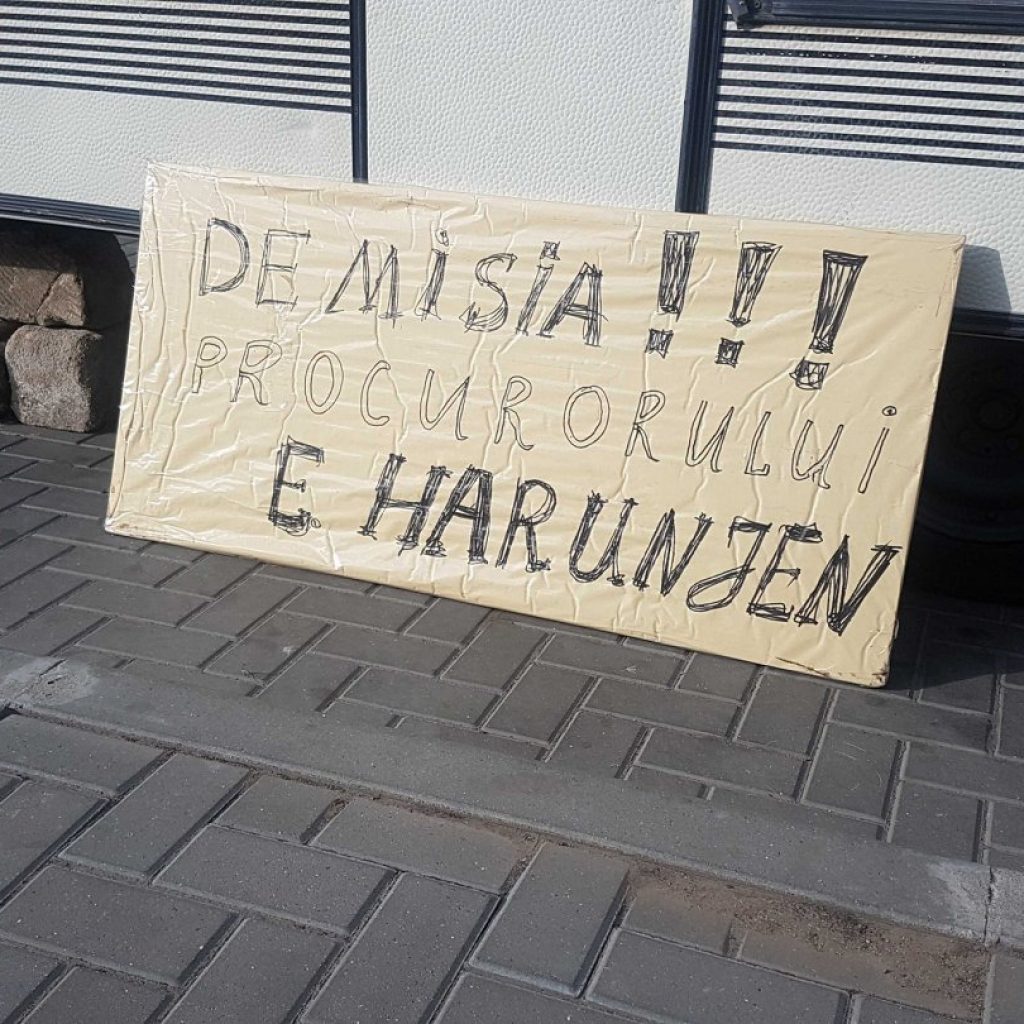 DEMISIA!!!
PROCURORULUI
E. HARUNJEN